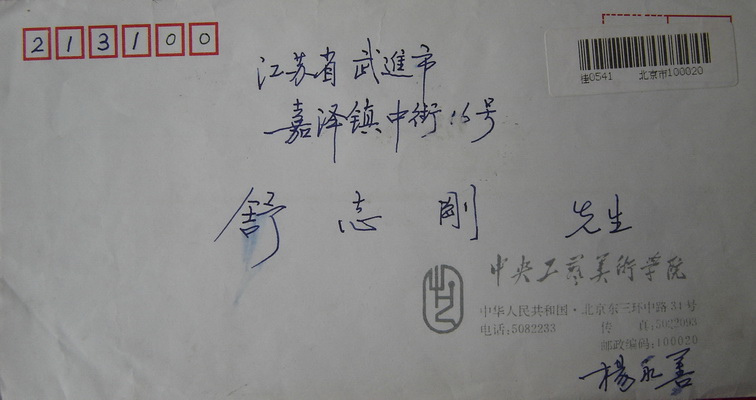 213100
江苏省武進市
嘉泽镇中街16号
舒志剛 先生
挂0541 北京市100020
中央工藝美術学院
中华人民共和国·北京东三环中路34号
电话:5082233 传真:5022093
邮政编码:100020
楊永善